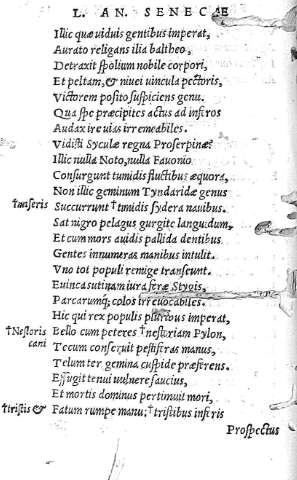 L. AN. SENECÆ
Illic quæ uiduis gentibus imperat,
Aurato religans ilia baltheo,
Detraxit spolium nobile corpori,
Et peltam, & niuei uincula pectoris,
Victorem posito suspiciens genu.
Qua spe præcipites actus ad inferos
Audax ire uias irremeabiles,
Vidisti Syculæ regna Proserpinæ?
Illic nulla Noto, nulla Fauonio
Consurgunt tumidis fluctibus æquora,
Non illic geminum Tyndaridæ genus
†anseris Succurrunt †timidis sydera nauibus.
Sat nigro pelagus gurgite languidum,
Et cum mors auidis pallida dentibus
Gentes innumeras manibus intulit.
Vno tot populi remige transeunt.
Euincas utinam iura feræ Stygis,
Parcarumq; colos irreuocabiles.
Hic qui rex populis pluribus imperat,
†Nestoris Bello cum peteres †nestoriam Pylon,
cani Tecum conseruit pestiferas manus,
Telum ter gemina cuspide præferens.
Effugit tenui uulnere saucius,
Et mortis dominus pertimuit mori,
†tristis & Fatum rumpe manu; †tristibus inferis
Prospectus